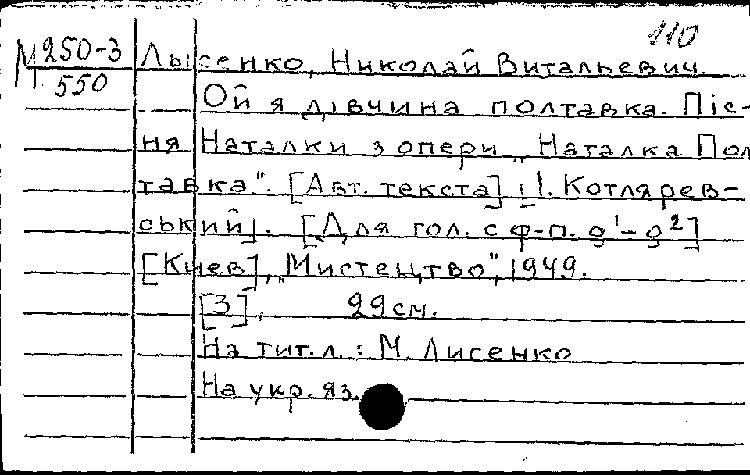 110
М 250-3 Лысенко, Николай Витальевич.
Т. 550
Ой я дівчина полтавка. Піс-
ня Наталки з опери „Наталка Пол
тавка". [Авт. текста] : І. Котлярев-
ський. [Для гол. с ф-п. g¹-g²]
[Киев], „Мистецтво", 1949.
[3], 29 см.
На тит. л. : М. Лисенко
На укр. яз.